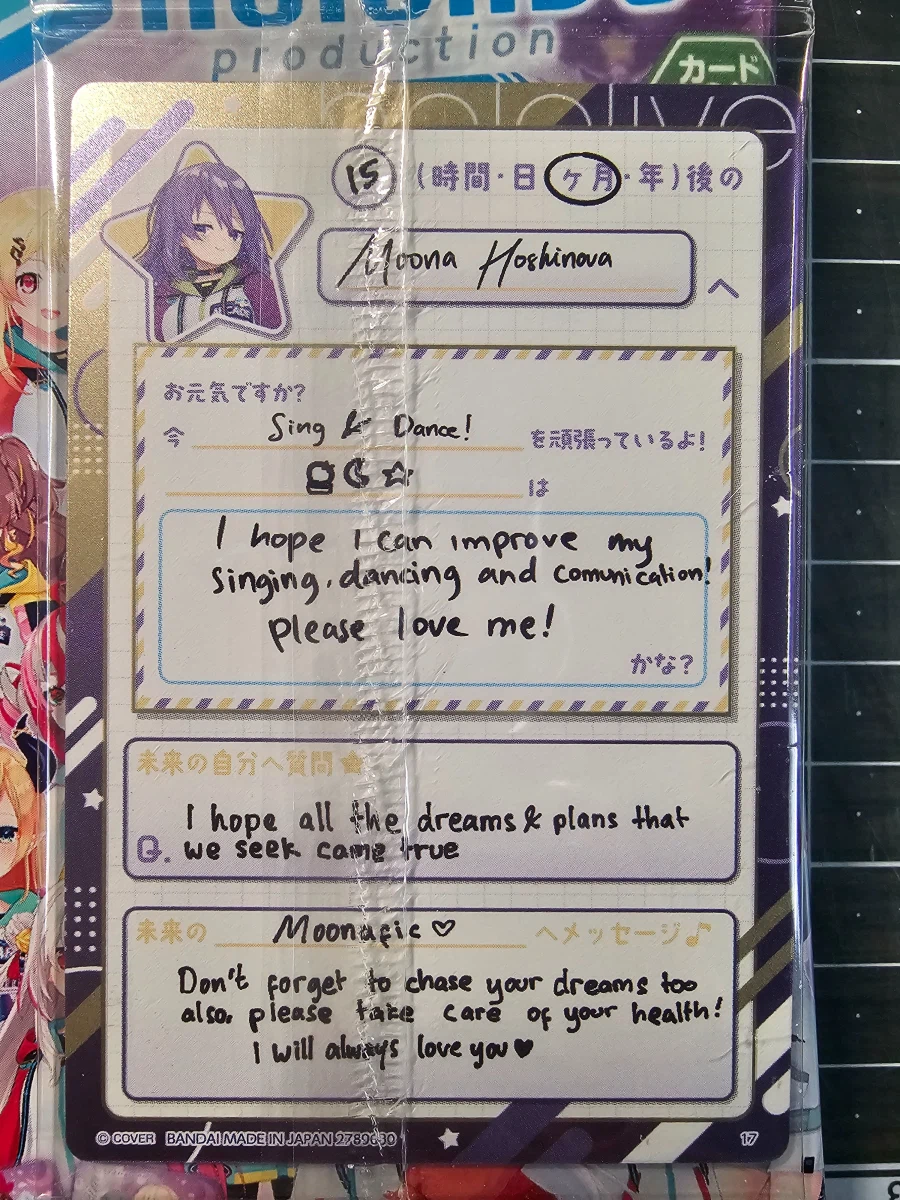 production
カード
hololive
15 (時間・日・ヶ月・年)後の
Moona Hoshinova
へ
お元気ですか?
今 Sing & Dance! を頑張っているよ!
は
I hope I can improve my
singing, dancing and comunication!
please love me!
かな?
未来の自分へ質問
I hope all the dreams & plans that
Q. we seek came true
未来の Moonafic♡ へメッセージ♪
Don't forget to chase your dreams too
also, please take care of your health!
I will always love you♥
© COVER BANDAI MADE IN JAPAN 2789630
17